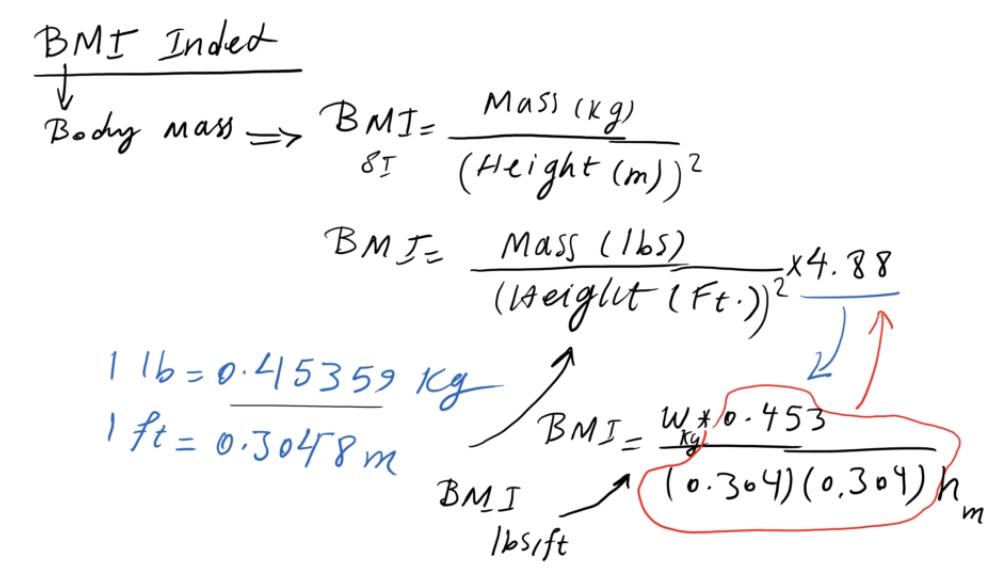 BMI Inded
Body mass ⇒ BMI = Mass (kg) / (Height (m))²
SI
BMI = Mass (lbs) / (Height (Ft.))² × 4.88
1 lb = 0.45359 Kg
1 ft = 0.3048 m
BMI = W * 0.453 / (0.304)(0.304) h
kg
m
BMI
lbs/ft